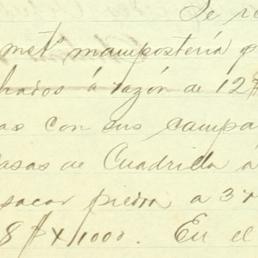 Se re
met. mampostería p
hados á razón de 12$
as con sus campa
asas de Cuadrilla á
sacar piedra a 3
8$ x 1000. En el